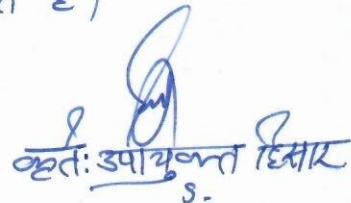 कृते: उपायुक्त हिसार
S.